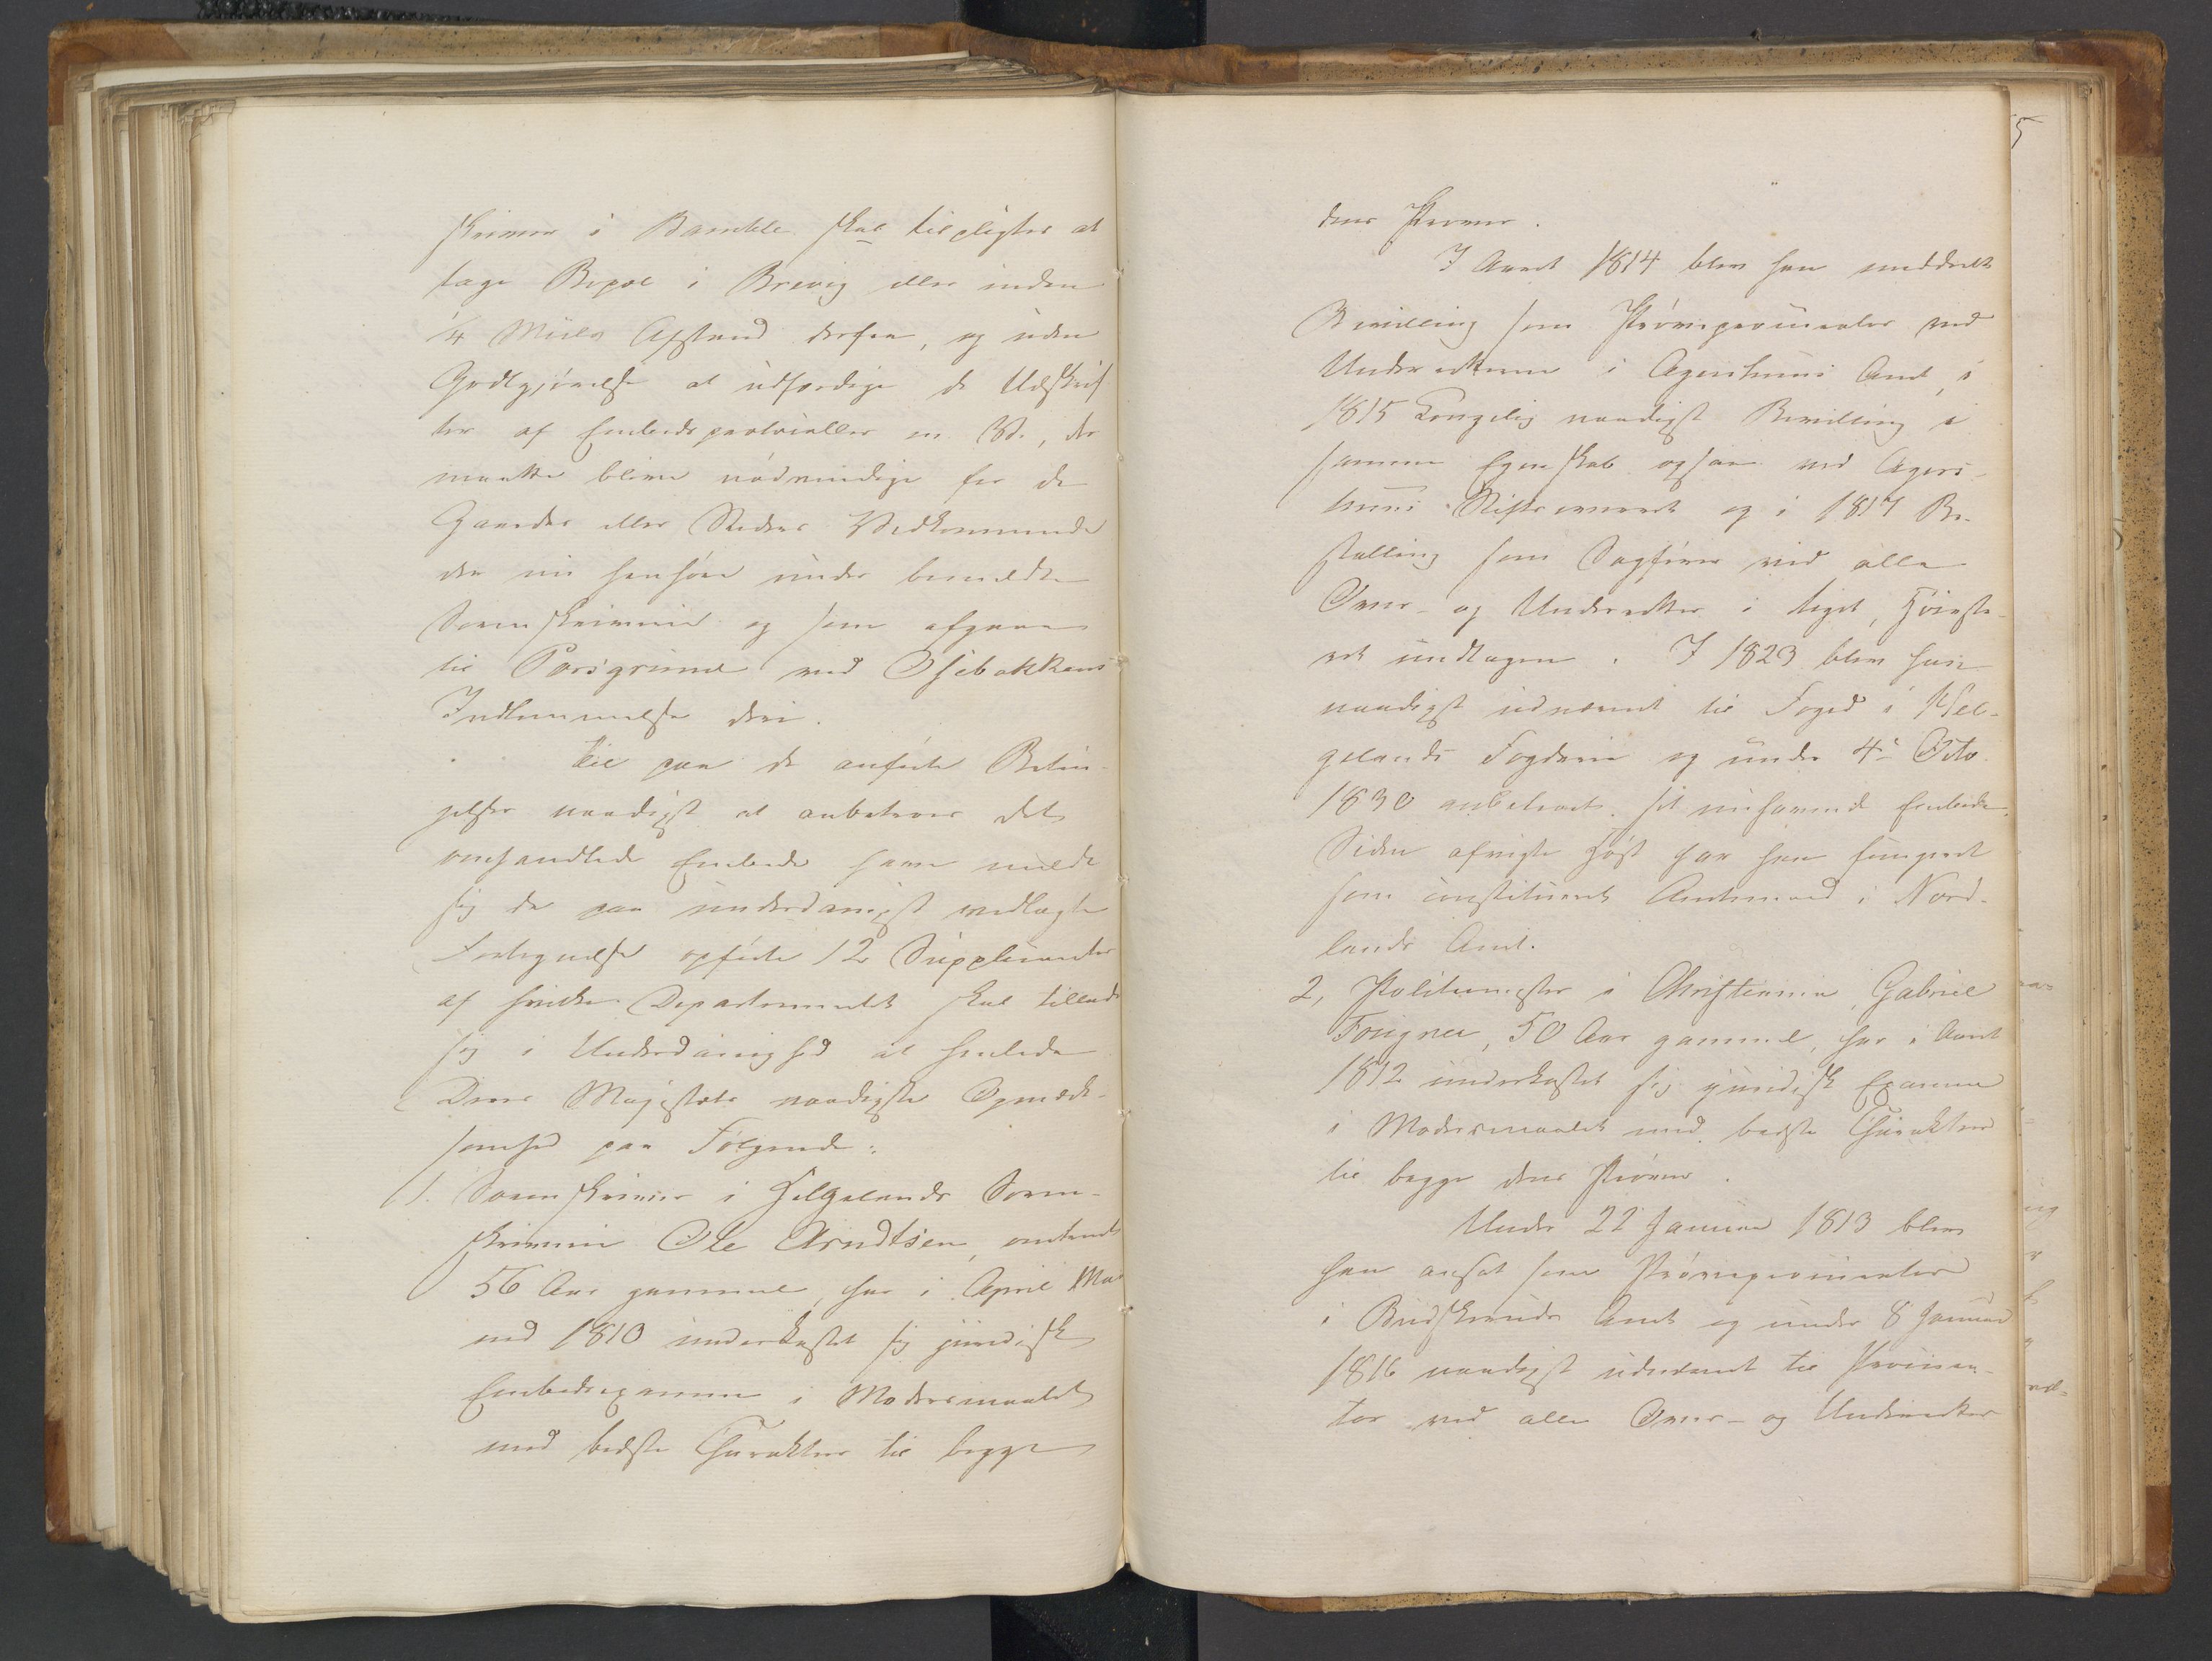 skriver i Bamble skal tilpligtes at
tage Bopæl i Brevig eller inden
1/4 Miils Afstand derfra, og uden
Godtgjørelse at udfærdige de Udskrif
ter af Embedsprotocoller m. V., der
maatte blive nødvendige for de
Gaardes eller Steders Vedkommende
der nu henhøre under bemeldte
Sorenskriverie og som afgaae
til Porsgrund med Osebakkens
Indlemmelse deri.
Til paa de anførte Betin-
gelser naadigst at anbetroes det
omhandlede Embede have meldt
sig de paa underdanigst vedlagte
Fortegnelse opførte 12 Supplicanter
af hvilke Departementet skal tillade
sig i Underdanighed at henlede
Deres Majestæts naadigste Opmærk-
somhed paa Følgende:
1. Sorenskriver i Helgelands Soren-
skriverie Ole Arndtsen, omtrent
56 Aar gammel, har i April Maa
ned 1810 underkastet sig juridisk
Embedsexamen i Modersmaalet
med bedste Charakteer til begge
dens Prøver.
I Aaret 1814 blev han meddeelt
Bevilling som Prøveprocurator ved
Underretterne i Agershuus Amt, i
1815 Kongelig naadigst Bevilling i
samme Egenskab ogsaa ved Agers-
huus Stiftsoverret og i 1817 Be-
stalling som Sagfører ved alle
Over- og Underretter i Riget, Høieste-
ret undtagen. I 1823 blev han
naadigst udnævnt til Foged i Hel-
gelands Fogderie og under 4de Octb.
1830 anbetroet sit nuhavende Embede.
Siden afvigte Høst har han fungeret
som constitueret Amtmand i Nord-
lands Amt.
2, Politimester i Christiania, Gabriel
Fougner, 50 Aar gammel, har i Aaret
1812 underkastet sig juridisk Examen
i Modersmaalet med bedste Charakteer
til begge dens Prøver.
Under 22 Januar 1813 blev
han ansat som Prøveprocurator
i Budskeruds Amt og under 8 Januar
1816 naadigst udnævnt til Procura-
tor ved alle Over- og Underretter